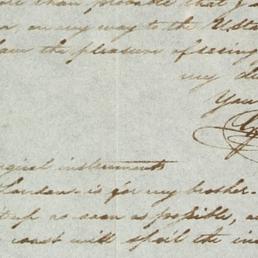 more than probable that I s
on my way to the U. Sta
have the pleasure of seeing
my de
You
rgical instruments
London is for my brother.
up as soon as possible, a
coast will spoil the in